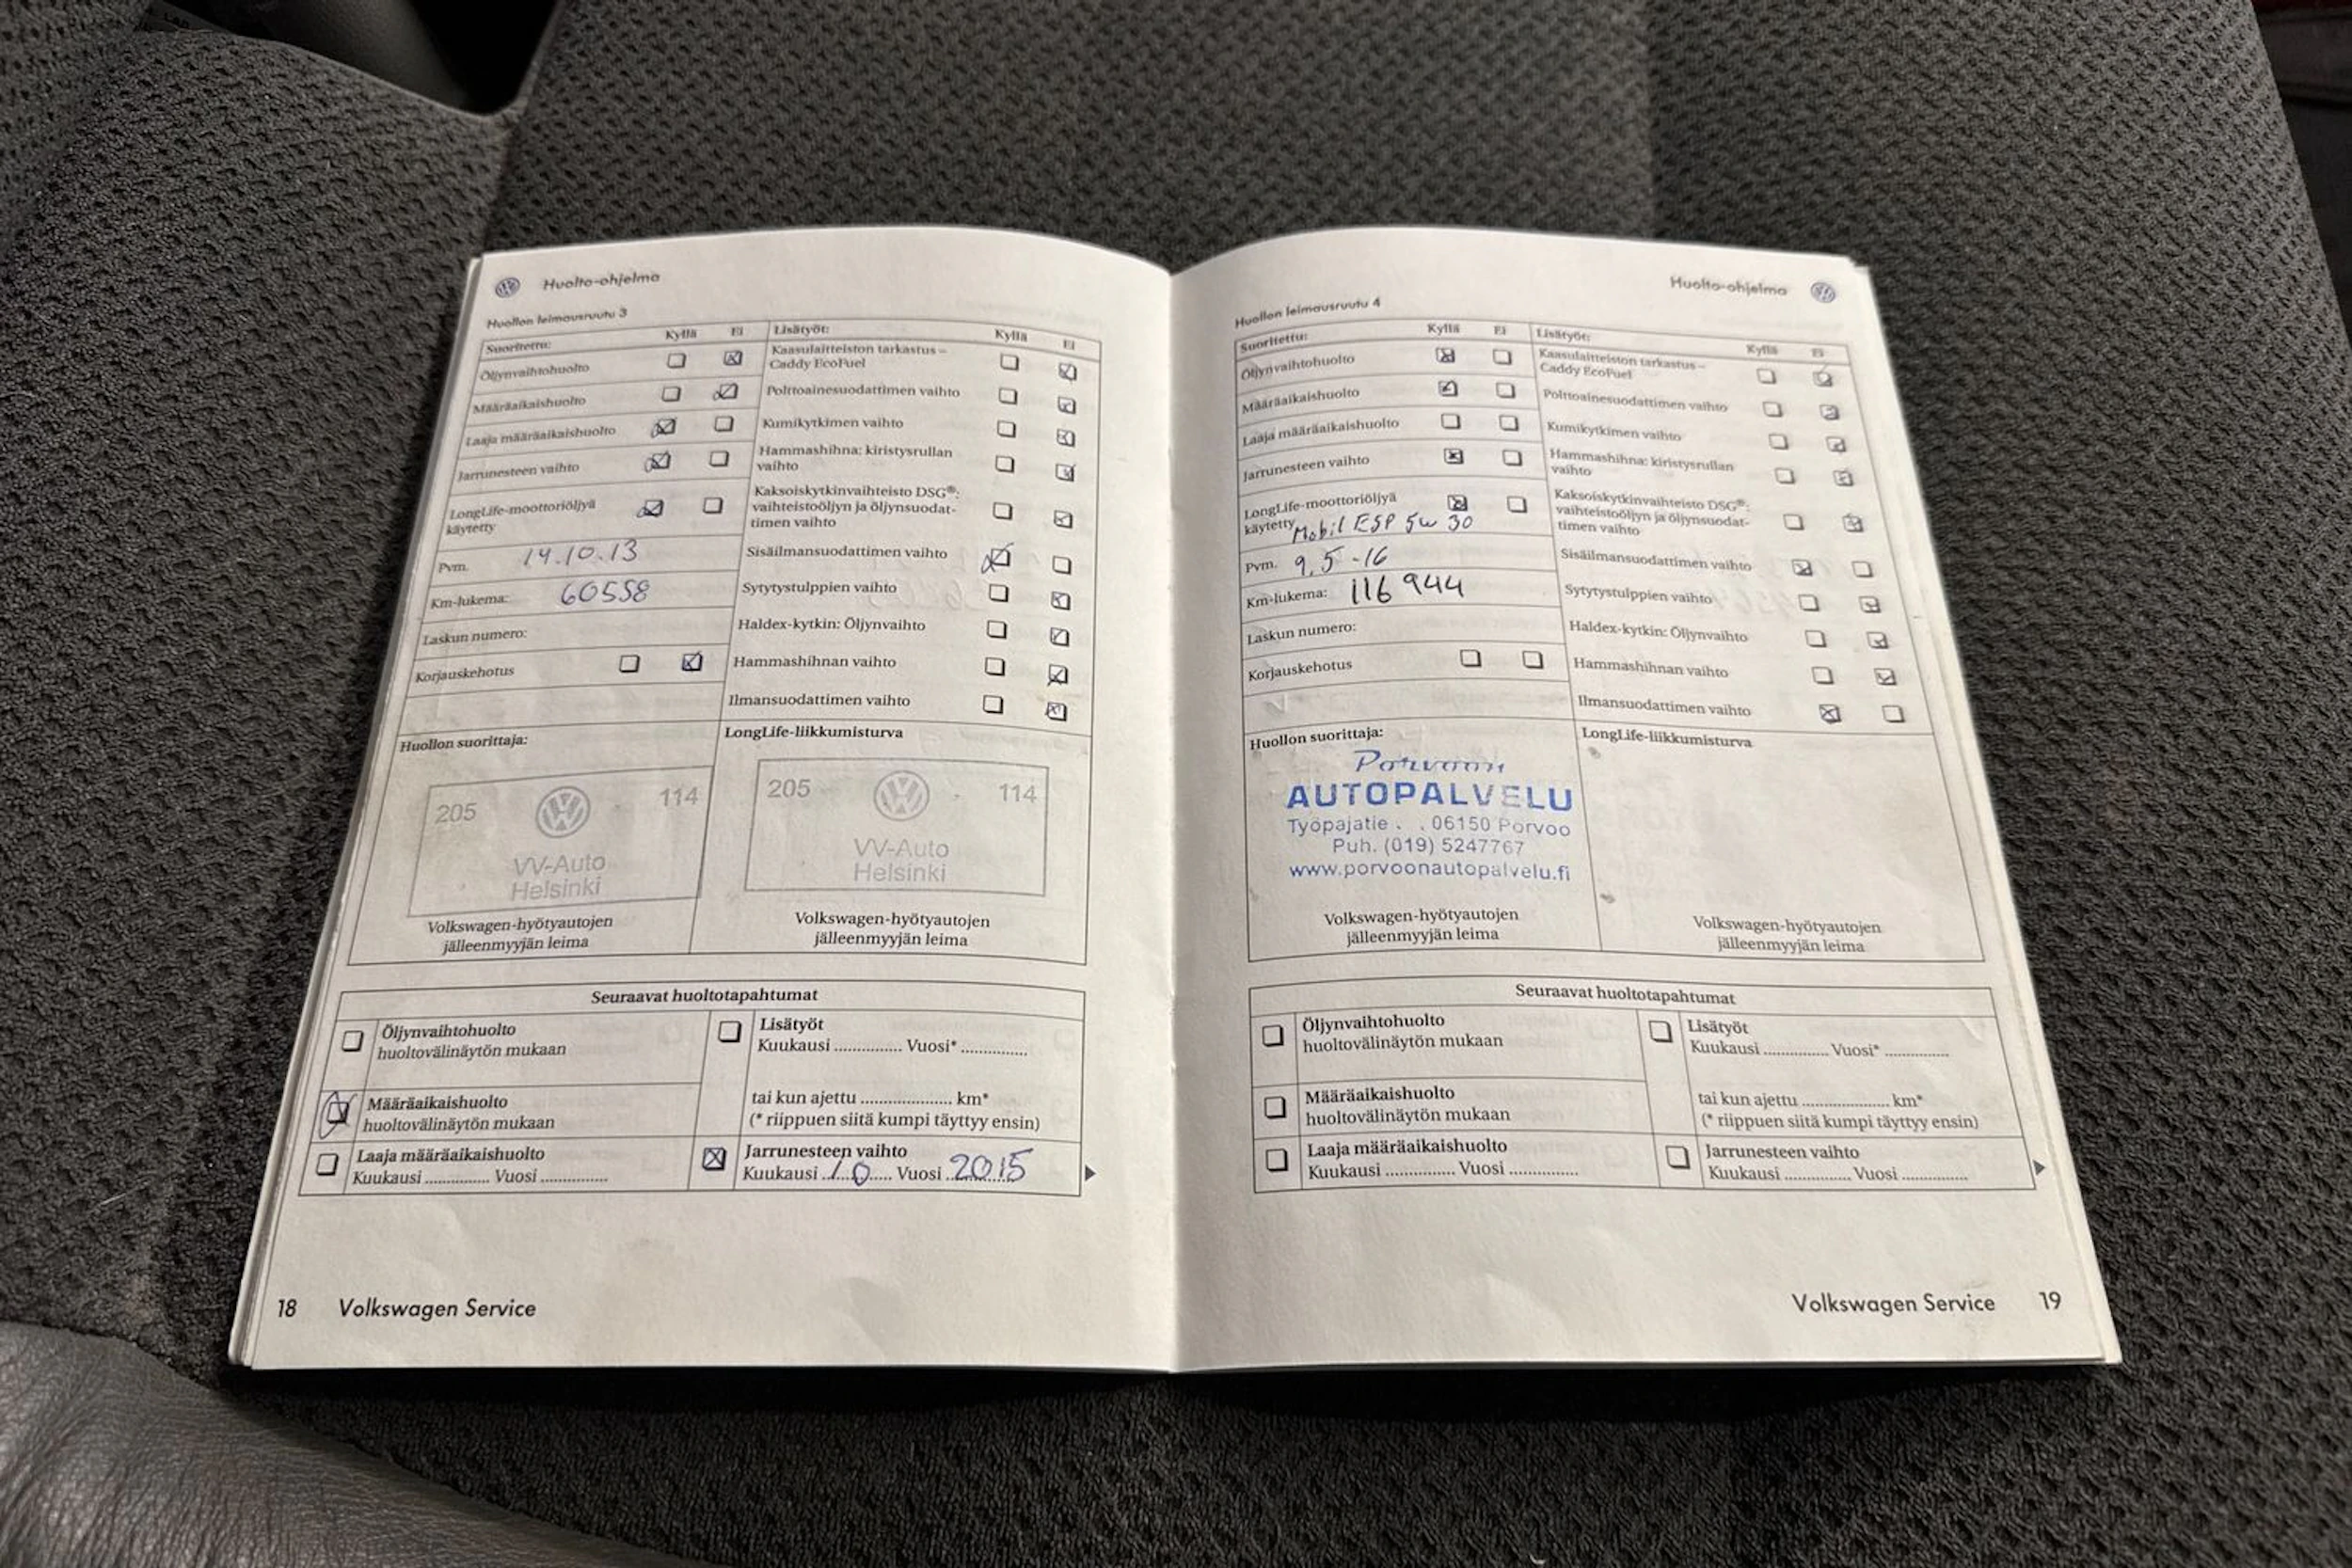 Huolto-ohjelma
Huollon leimausruutu 3
Suoritettu: Kyllä Ei
Öljynvaihtohuolto
Määräaikaishuolto
Laaja määräaikaishuolto
Jarrunesteen vaihto
LongLife-moottoriöljyä
käytetty
Pvm. 14.10.13
Km-lukema: 60558
Laskun numero:
Korjauskehotus
Lisätyöt: Kyllä Ei
Kaasulaitteiston tarkastus –
Caddy EcoFuel
Polttoainesuodattimen vaihto
Kumikytkimen vaihto
Hammashihna: kiristysrullan
vaihto
Kaksoiskytkinvaihteisto DSG®:
vaihteistoöljyn ja öljynsuodat-
timen vaihto
Sisäilmansuodattimen vaihto
Sytytystulppien vaihto
Haldex-kytkin: Öljynvaihto
Hammashihnan vaihto
Ilmansuodattimen vaihto
Huollon suorittaja:
205 114
VV-Auto
Helsinki
Volkswagen-hyötyautojen
jälleenmyyjän leima
LongLife-liikkumisturva
205 114
VV-Auto
Helsinki
Volkswagen-hyötyautojen
jälleenmyyjän leima
Seuraavat huoltotapahtumat
Öljynvaihtohuolto
huoltovälinäytön mukaan
Määräaikaishuolto
huoltovälinäytön mukaan
Laaja määräaikaishuolto
Kuukausi ............... Vuosi ...............
Lisätyöt
Kuukausi ............... Vuosi* ...............
tai kun ajettu .................... km*
(* riippuen siitä kumpi täyttyy ensin)
Jarrunesteen vaihto
Kuukausi 10 Vuosi 2015
18 Volkswagen Service
Huolto-ohjelma
Huollon leimausruutu 4
Suoritettu: Kyllä Ei
Öljynvaihtohuolto
Määräaikaishuolto
Laaja määräaikaishuolto
Jarrunesteen vaihto
LongLife-moottoriöljyä
käytetty Mobil ESP 5w 30
Pvm. 9.5-16
Km-lukema: 116944
Laskun numero:
Korjauskehotus
Lisätyöt: Kyllä Ei
Kaasulaitteiston tarkastus –
Caddy EcoFuel
Polttoainesuodattimen vaihto
Kumikytkimen vaihto
Hammashihna: kiristysrullan
vaihto
Kaksoiskytkinvaihteisto DSG®:
vaihteistoöljyn ja öljynsuodat-
timen vaihto
Sisäilmansuodattimen vaihto
Sytytystulppien vaihto
Haldex-kytkin: Öljynvaihto
Hammashihnan vaihto
Ilmansuodattimen vaihto
Huollon suorittaja:
Porvoon
AUTOPALVELU
Työpajatie . . 06150 Porvoo
Puh. (019) 5247767
www.porvoonautopalvelu.fi
Volkswagen-hyötyautojen
jälleenmyyjän leima
LongLife-liikkumisturva
Volkswagen-hyötyautojen
jälleenmyyjän leima
Seuraavat huoltotapahtumat
Öljynvaihtohuolto
huoltovälinäytön mukaan
Määräaikaishuolto
huoltovälinäytön mukaan
Laaja määräaikaishuolto
Kuukausi ............... Vuosi ...............
Lisätyöt
Kuukausi ............... Vuosi* ...............
tai kun ajettu .................... km*
(* riippuen siitä kumpi täyttyy ensin)
Jarrunesteen vaihto
Kuukausi ............... Vuosi ...............
Volkswagen Service 19